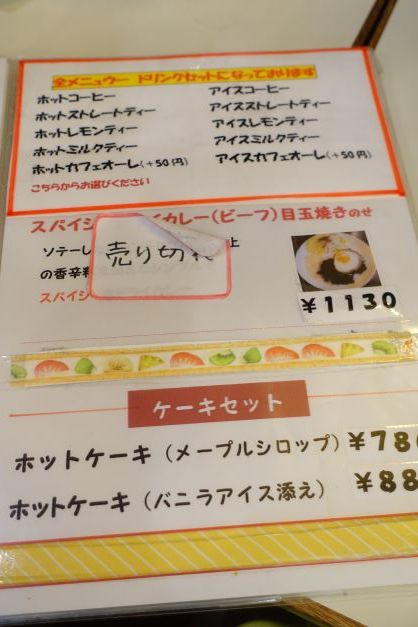 全メニュー ドリンクセットになっております
ホットコーヒー
ホットストレートティー
ホットレモンティー
ホットミルクティー
ホットカフェオーレ(+50円)
こちらからお選びください
アイスコーヒー
アイスストレートティー
アイスレモンティー
アイスミルクティー
アイスカフェオーレ(+50円)
スパイシ イカレー(ビーフ)目玉焼きのせ
ソテーし 上
の香辛料
スパイシ
売り切れ
¥1130
ケーキセット
ホットケーキ(メープルシロップ)¥78
ホットケーキ(バニラアイス添え) ¥88